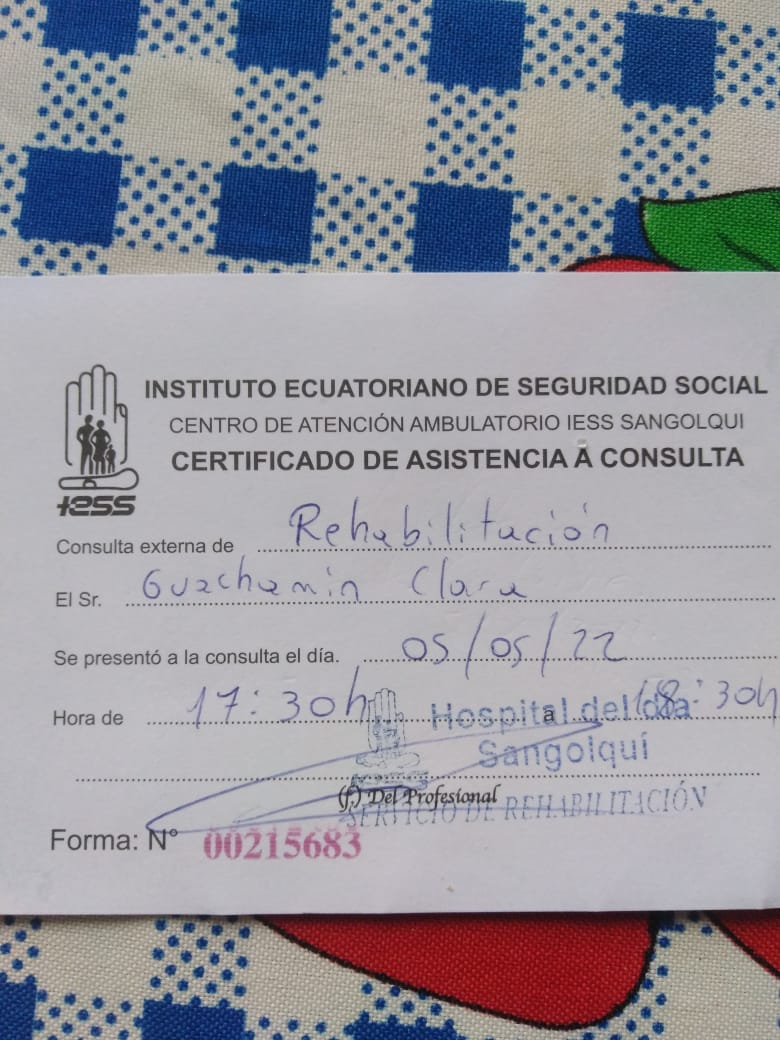 INSTITUTO ECUATORIANO DE SEGURIDAD SOCIAL
CENTRO DE ATENCIÓN AMBULATORIO IESS SANGOLQUI
CERTIFICADO DE ASISTENCIA A CONSULTA
IESS
Consulta externa de Rehabilitación
El Sr. Guachamin Clara
Se presentó a la consulta el día. 05/05/22
Hora de 17:30h a 18:30h
Hospital del día
Sangolquí
(f.) Del Profesional
SERVICIO DE REHABILITACIÓN
Forma: N° 00215683